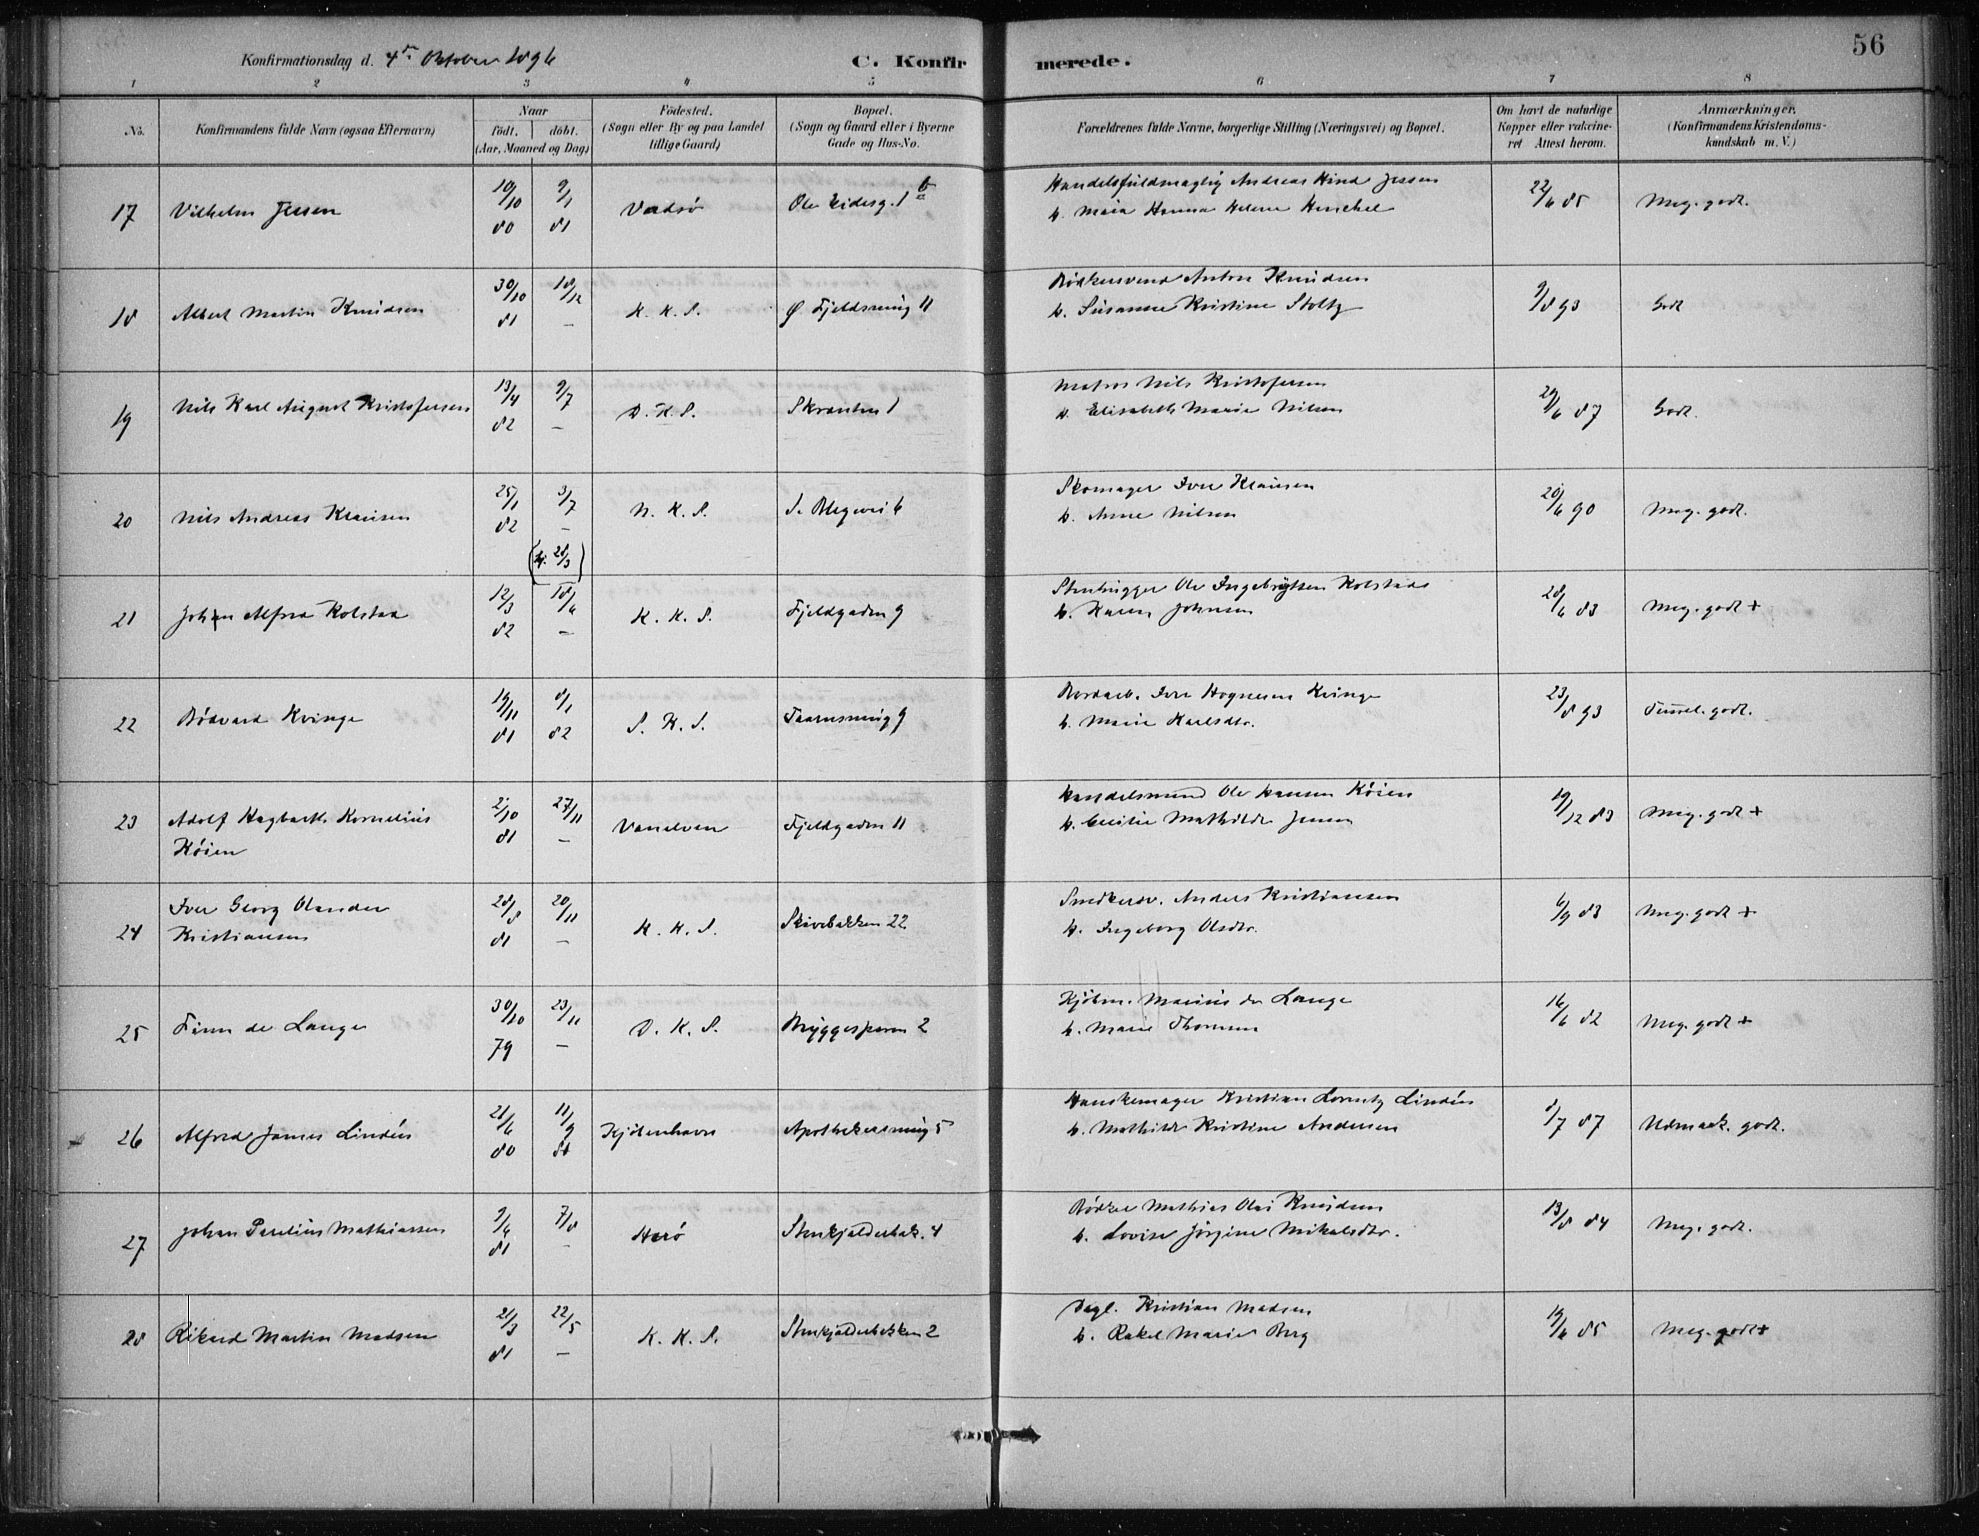 Konfirmationsdag d. 4de Oktober 1896
C. Konfirmerede.
56
1 2 3 4 5 6 7 8
No.
Konfirmandens fulde Navn (ogsaa Efternavn)
Naar
födt. döbt.
(Aar, Maaned og Dag)
Födested.
(Sogn eller By og paa Landet
tillige Gaard)
Bopæl.
(Sogn og Gaard eller i Byerne
Gade og Hus-No.
Forældrenes fulde Navne, borgerlige Stilling (Næringsvei) og Bopæl.
Om havt de naturlige
Kopper eller vakcine-
ret Attest herom.
Anmærkninger.
(Konfirmandens Kristendoms-
kundskab m. V.)
17 Vilhelm Jessen 10/10 80 9/1 81 Vadsö Ole Iridesg. 1 b
Handelsfuldmægtig Andreas Hind Jessen
h. Maia Hanna Helene Henchel 22/6 85 Meg. godt.
18 Albert Martin Knudsen 30/10 81 18/12 — K. K. S. Ø Fjeldsmug 11
Bödkersvend Anton Knudsen
h. Susanne Kristine Stoltz 9/8 93 Godt
19 Nils Karl August Kristofersen 13/4 82 9/7 — D. K. S. Skranten 1
Matros Nils Kristofersen
h. Elisabeth Marie Nilsen 29/6 87 Godt.
20 Nils Andreas Klausen 25/1 82 3/7 — N. K. S. S. Blegevei 6
(hj. 28/3)
Skomager Iver Klausen
h. Anne Nilsen 20/6 90 Meg. godt.
21 Johan Alfred Kolstad 12/3 82 18/6 — K. K. S. Fjeldgaden 9
Stenhugger Ole Ingebrigtsen Kolstad
h. Karen Johnsen 28/6 83 Meg. godt +
22 Bödvard Kvinge 19/11 81 8/1 82 S. K. S. Taarnsmug 9
Bordarb. Iver Hognesen Kvinge
h. Marie Karlsdtr. 23/8 93 Temmel. godt.
23 Adolf Hagbarth Kornelius
Köien 2/10 81 27/11 — Vanelven Fjeldgaden 11
Handelsmand Ole Hansen Köien
h. Cecilie Mathilde Jensen 19/12 83 Meg. godt +
24 Iver Georg Olander
Kristiansen 28/8 81 20/11 — K. K. S. Skivebakken 22
Smedkersv. Anders Kristiansen
h. Ingeborg Olsdtr. 6/9 83 Meg. godt +
25 Finn de Lange 30/10 79 23/11 — D. K. S. Bryggesporen 2
Kjöbm. Marius de Lange
h. Marie Thomsen 16/6 82 Meg. godt +
26 Alfred James Lindéus 21/6 80 11/9 80 Kjöbenhavn Apothekersmug 5
Handskemager Kristian Lorentz Lindéus
h. Mathilde Kristine Andersen 8/7 87 Udmærk. godt.
27 Johan Parelius Mathiassen 9/6 81 7/8 — Herö Stenkjælderbak. 4
Bödker Mathias Olai Knudsen
h. Lovise Jörgine Mikalsdtr. 13/8 84 Meg. godt.
28 Rikard Martin Madsen 21/3 81 22/5 — K. K. S. Stenkjælderbakken 2
Dagl. Kristian Madsen
h. Rakel Marie Berg 19/6 85 Meg. godt +